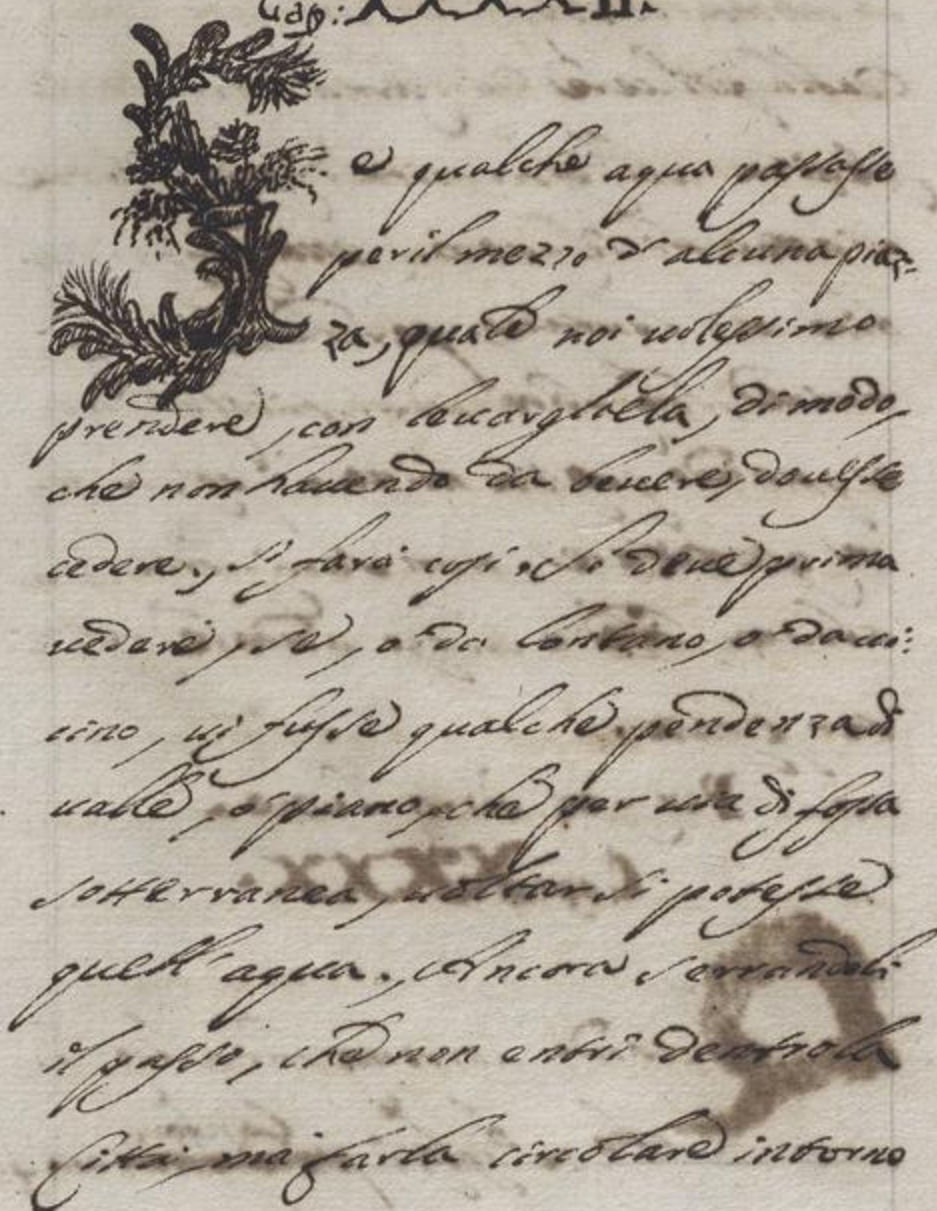 Cap: XXXXII.
Se qualche aqua passasse
per il mezzo d'alcuna piaz-
za, quale noi uolessimo
prendere, con leuargliela, di modo,
che non hauendo da beuere, douesse
cedere., si farà cosi. Si deue prima
uedere, se, ò da lontano, ò da ui:
cino, ui fusse qualche pendenza di
ualle, ò piano, che per uia di fossa
sotterranea, uoltar si potesse
quell'aqua., Ancora serrandoli
il passo, che non entri dentro la
Città, ma farla circolare intorno